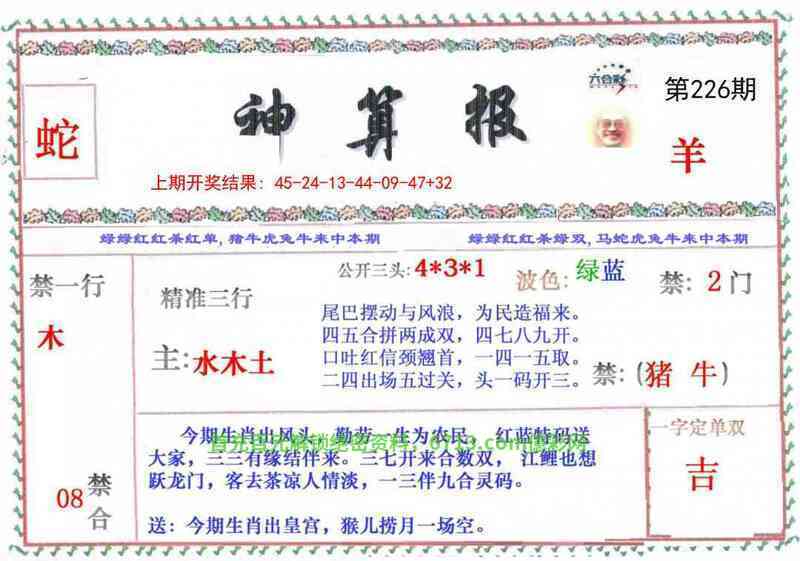 六合彩
第226期
蛇
神算报
羊
上期开奖结果：45-24-13-44-09-47+32
绿绿红红杀红单, 猪牛虎兔牛来中本期
绿绿红红杀绿双, 马蛇虎兔牛来中本期
禁一行
木
精准三行
主: 水木土
公开三头: 4*3*1
波色: 绿蓝
禁: 2门
尾巴摆动与风浪，为民造福来。
四五合拼两成双，四七八九开。
口吐红信颈翘首，一四一五取。
二四出场五过关，头一码开三。
禁: (猪 牛)
08
禁合
今期生肖出风头，勤劳一生为农民。 红蓝特码送
大家，三三有缘结伴来。三七开来合数双， 江鲤也想
跃龙门，客去茶凉人情淡，一三伴九合灵码。
送：今期生肖出皇宫，猴儿捞月一场空。
一字定单双
吉